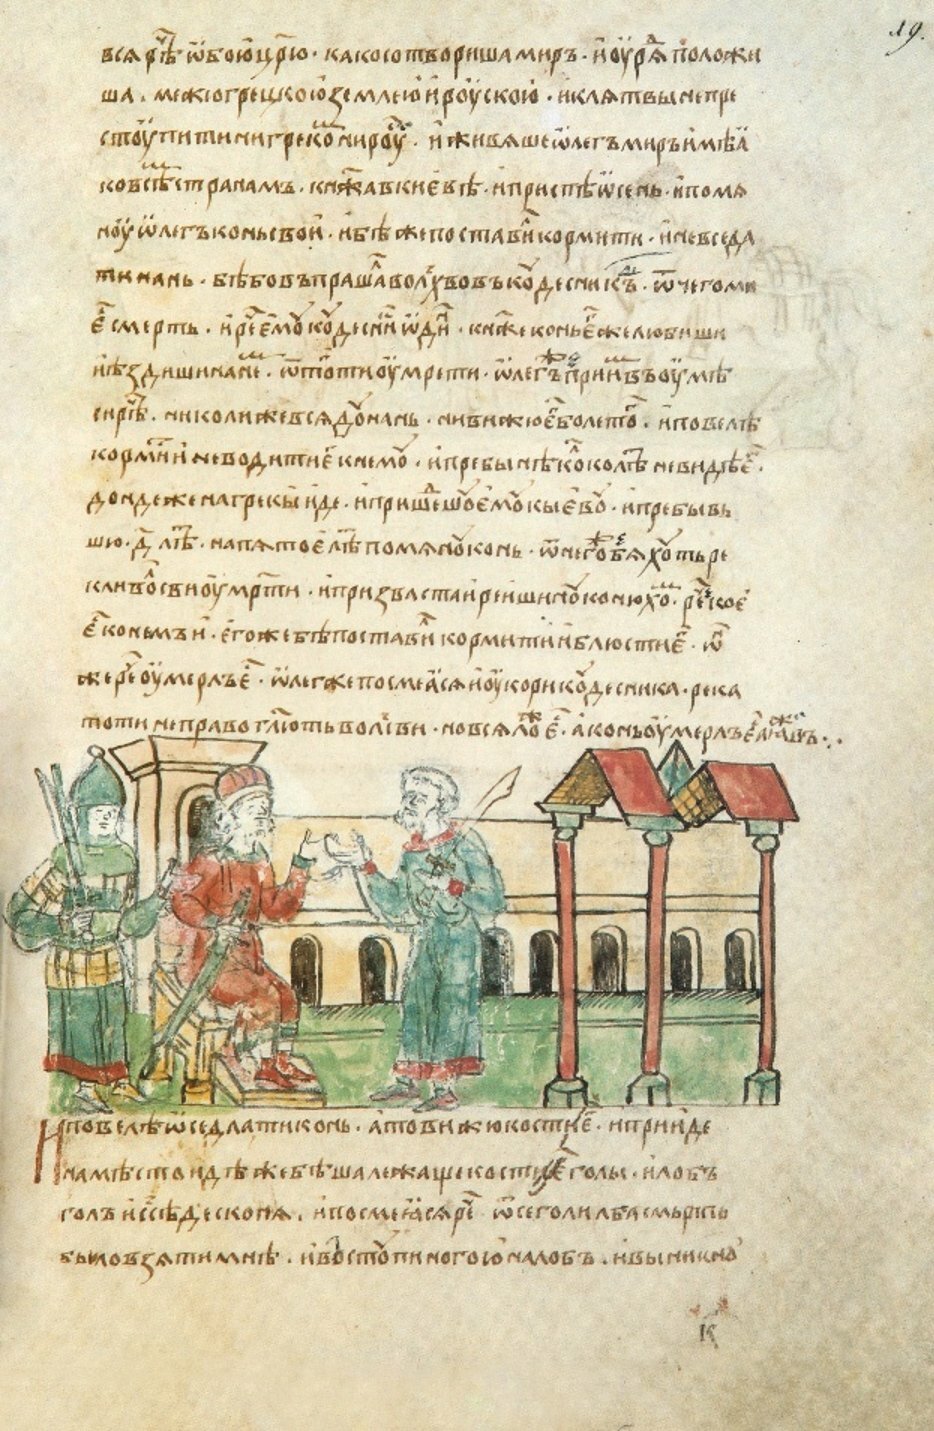 19.
вся рѣⷱ҇ ѿ бою цр҃ю · како сотвориша миръ · и оурѧⷣ положи
ша · межю грецкою землею и роускою · и клятвы не пре
стоупити ни грекоⷨ ни роуⷭ҇ · и живяше ѿлегъ миръ имѣꙗ
ко всѣⷨ странамъ · кнѧжа в киевѣ · и приспѣ ѡсень · и помя
ноу ѿлегъ конь свои · и бѣ же поставиⷧ҇ кормити · и не вседа
ти на нь · бѣ бо въпрашаⷧ҇ волъхвовъ коудесникъ · ѿ чего ми
еⷭ҇ смерть · и рⷱ҇е емоу коудесниⷦ҇ ѡдиⷩ҇ · кнѧже конь еⷢ҇ же любиши
и ѣздиши на неⷨ · ѿ тоⷢ҇ ти оумрети · ѿлегъ же приимъ въ оумѣ
си рⷱ҇ѣ · николи же всядоу на нь · ни вижю еⷢ҇ боле тоⷢ҇ · и повелѣ
кормиⷮ҇ и и не водити еⷢ҇ к немоу · и пребы нѣкоⷧ҇ко лѣⷮ҇ не видѣ еⷢ҇ ·
дондеже на грекы иде · и пришеⷣшоу емоу кыевоу · и пребывь
шю · д҃ лѣⷮ҇ · на пятое лѣⷮ҇ помяноу конь · ѿ негоⷤ бяхоуть ре
кли воⷧ҇сви оумрⷮ҇ети · и призва стареишиноу конюхоⷨ · рⷱ҇е кое
еⷭ҇ конь мъи · егоже бѣ поставиⷧ҇ кормити и блюсти еⷢ҇ · ѡⷩ҇
же рⷱ҇е оумерлъ еⷭ҇ · ѿлег же посмеꙗся и оукори коудесника · река
то ти не право гл҃ють волъсви · но вся лоⷤ еⷭ҇ · а конь оумерлъ еⷭ҇ а ꙗ живъ ·
И повелѣ ѡседлати конь · а то вижю кости еⷢ҇ · и прииде
на мѣсто идѣ же бѣша лежаще кости еⷢ҇ голы · и лобъ
голъ и ссѣде с коня · и посмеꙗся рⷱ҇е ѿ сего ли лба смьрть
было взяти мнѣ · и въстоупи ногою на лобъ · и выникноу